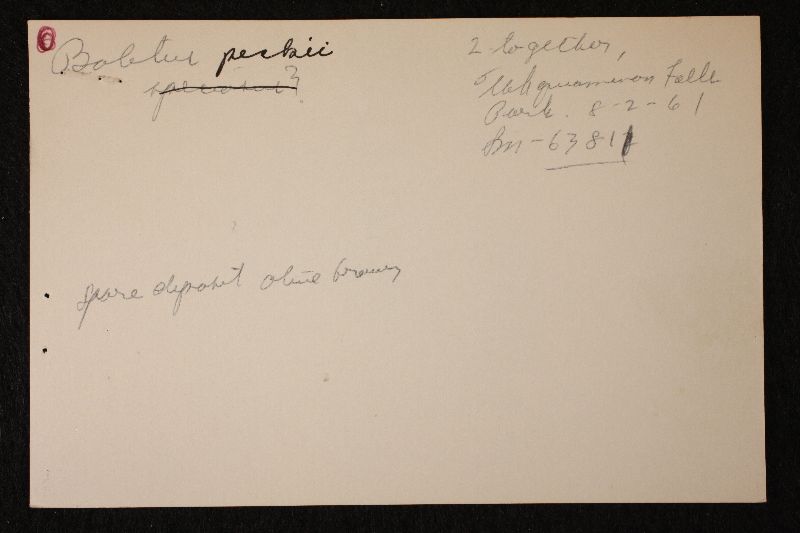 Boletus peckii
speciosus?
2 together,
Tahquamenon Falls
Park. 8-2-61
Sm-63811
spore deposit olive brown